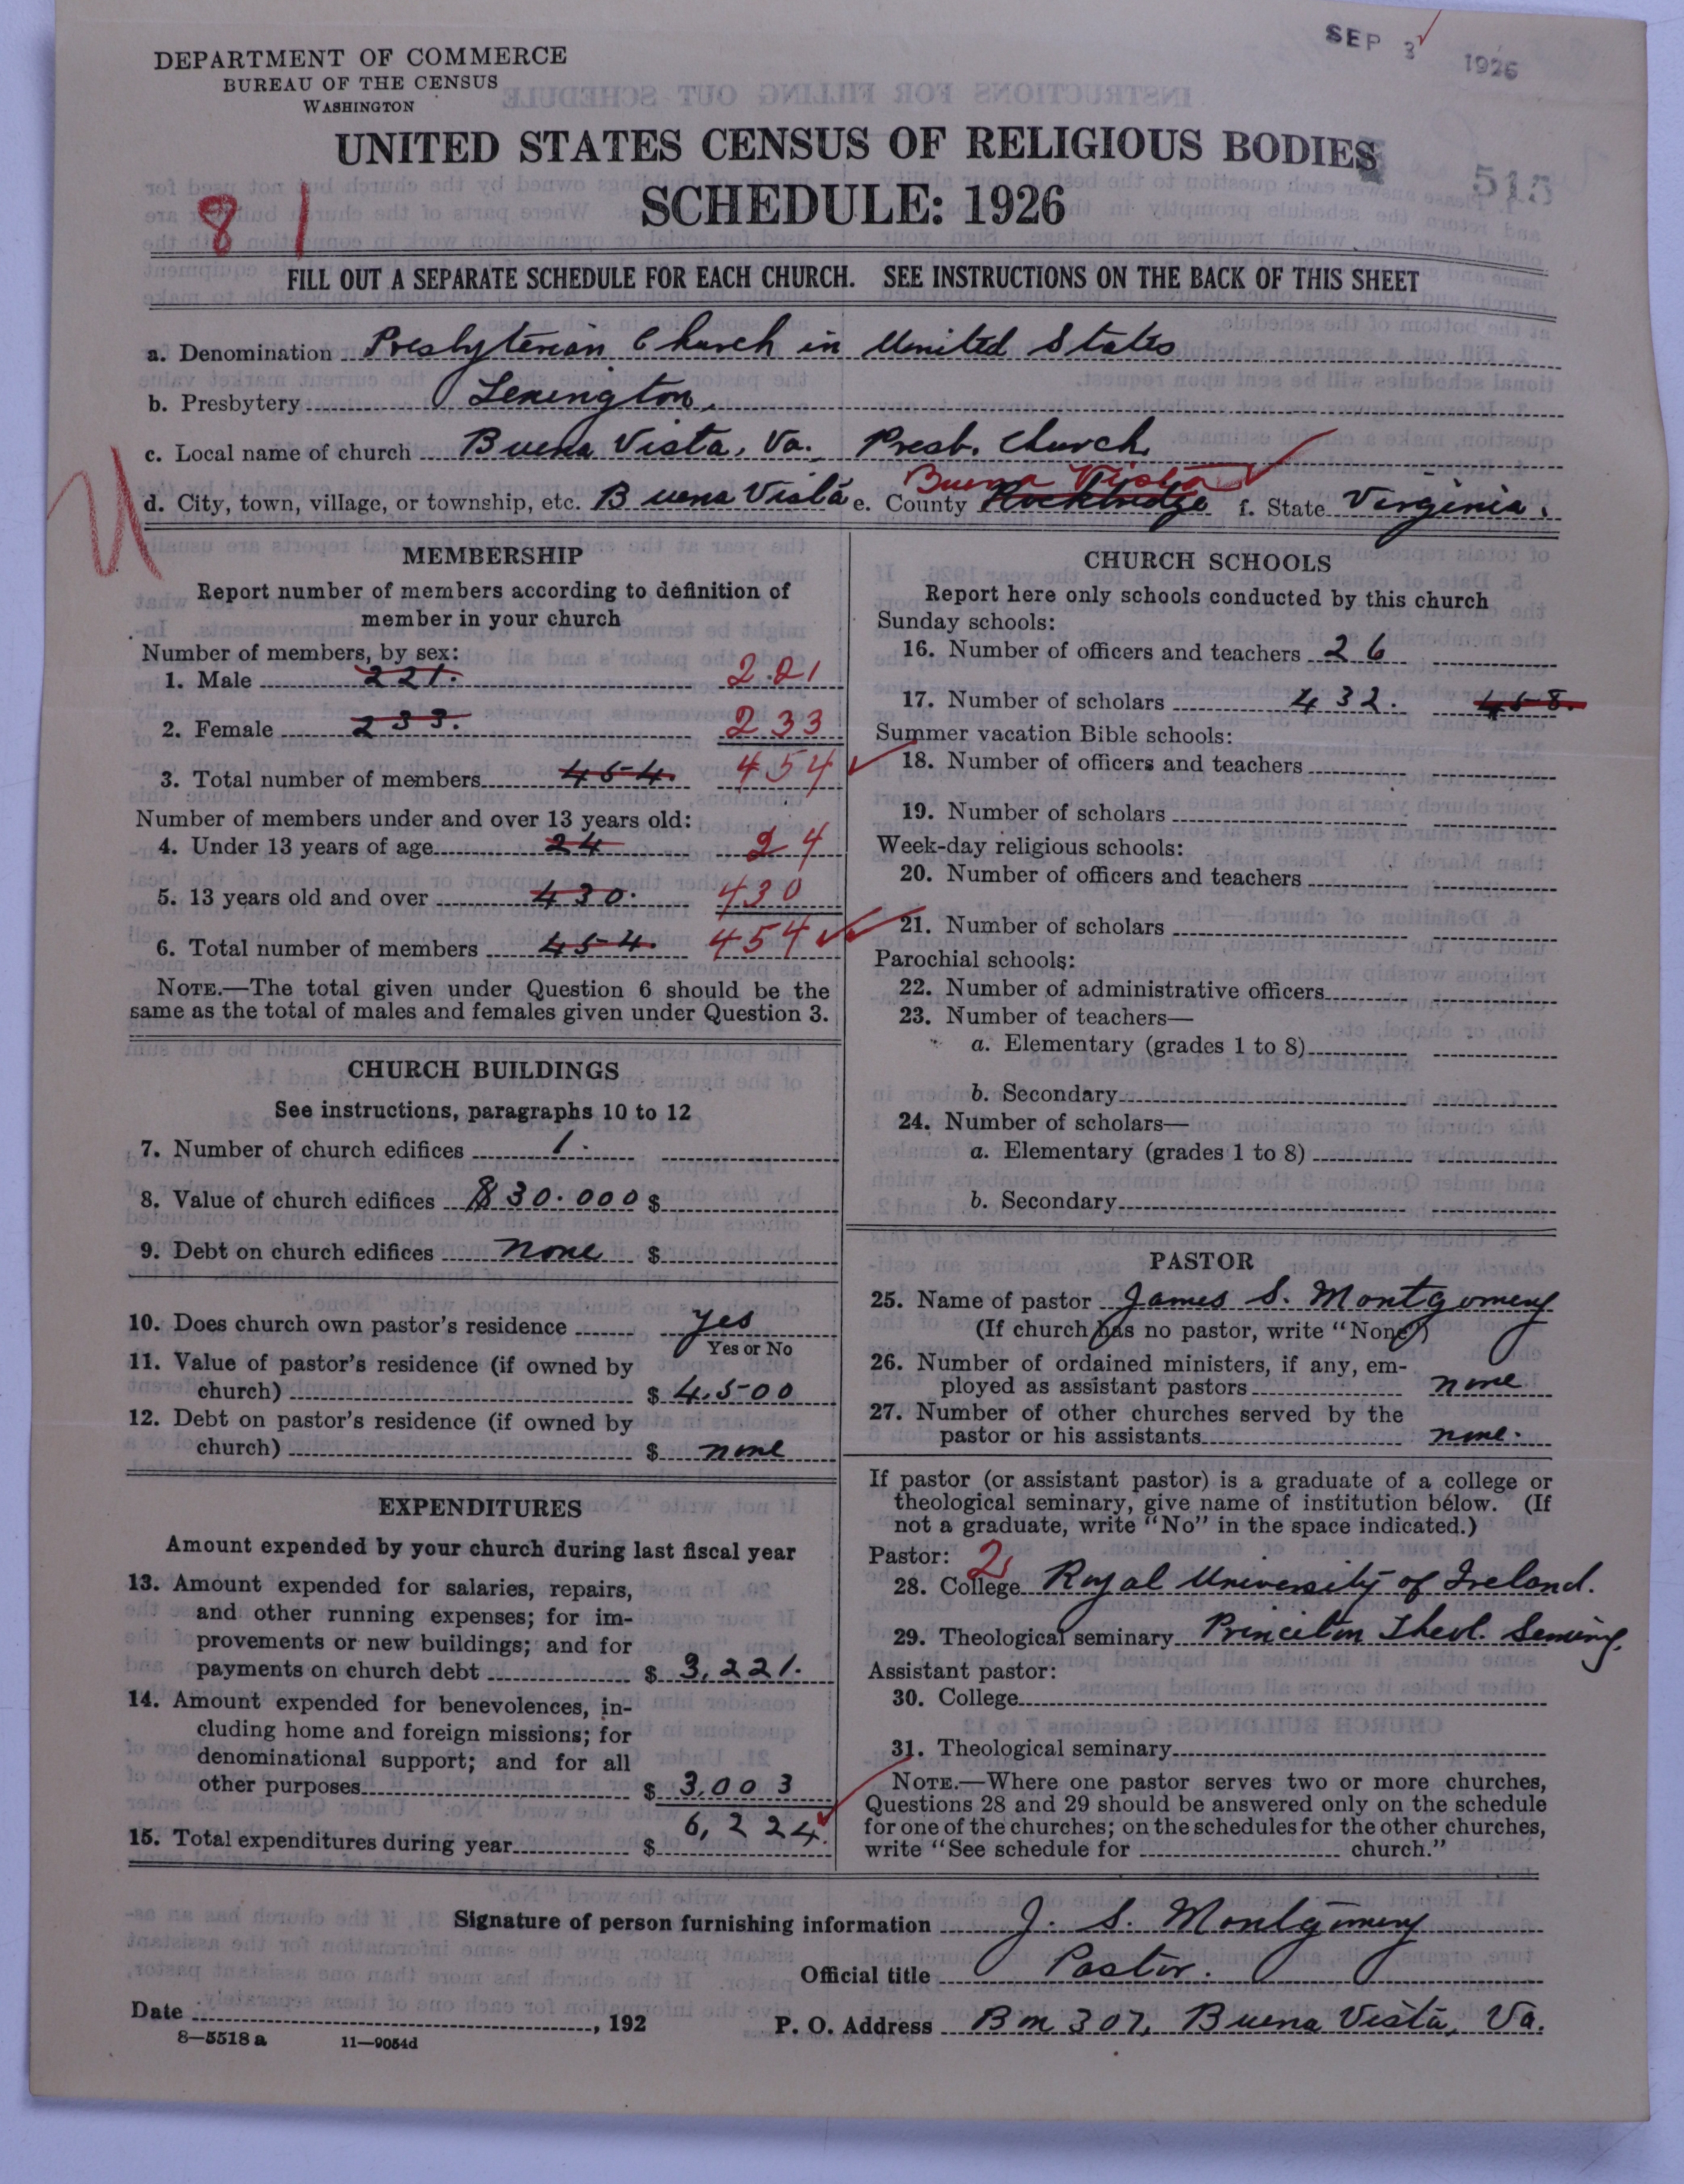 SEP 3 1926
DEPARTMENT OF COMMERCE
BUREAU OF THE CENSUS
WASHINGTON
UNITED STATES CENSUS OF RELIGIOUS BODIES
515
SCHEDULE: 1926
8 1
FILL OUT A SEPARATE SCHEDULE FOR EACH CHURCH. SEE INSTRUCTIONS ON THE BACK OF THIS SHEET
a. Denomination Presbyterian Church in United States
b. Presbytery Lexington,
c. Local name of church Buena Vista, Va. Presb. Church
Buena Vista
d. City, town, village, or township, etc. Buena Vista e. County Rockbridge f. State Virginia.
MEMBERSHIP
Report number of members according to definition of
member in your church
Number of members, by sex:
1. Male 221. 221
2. Female 233. 233
3. Total number of members 454. 454
Number of members under and over 13 years old:
4. Under 13 years of age 24 24
5. 13 years old and over 430. 430
6. Total number of members 454. 454
NOTE.—The total given under Question 6 should be the
same as the total of males and females given under Question 3.
CHURCH BUILDINGS
See instructions, paragraphs 10 to 12
7. Number of church edifices 1.
8. Value of church edifices $30.000 $
9. Debt on church edifices none $
10. Does church own pastor's residence yes
Yes or No
11. Value of pastor's residence (if owned by
church) $ 4,500
12. Debt on pastor's residence (if owned by
church) $ none
EXPENDITURES
Amount expended by your church during last fiscal year
13. Amount expended for salaries, repairs,
and other running expenses; for im-
provements or new buildings; and for
payments on church debt $ 3,221.
14. Amount expended for benevolences, in-
cluding home and foreign missions; for
denominational support; and for all
other purposes $ 3,003
15. Total expenditures during year $ 6,224.
CHURCH SCHOOLS
Report here only schools conducted by this church
Sunday schools:
16. Number of officers and teachers 26
17. Number of scholars 432. 458.
Summer vacation Bible schools:
18. Number of officers and teachers
19. Number of scholars
Week-day religious schools:
20. Number of officers and teachers
21. Number of scholars
Parochial schools:
22. Number of administrative officers
23. Number of teachers—
a. Elementary (grades 1 to 8)
b. Secondary
24. Number of scholars—
a. Elementary (grades 1 to 8)
b. Secondary
PASTOR
25. Name of pastor James S. Montgomery
(If church has no pastor, write "None")
26. Number of ordained ministers, if any, em-
ployed as assistant pastors none
27. Number of other churches served by the
pastor or his assistants none.
If pastor (or assistant pastor) is a graduate of a college or
theological seminary, give name of institution below. (If
not a graduate, write "No" in the space indicated.)
Pastor: 2
28. College Royal University of Ireland.
29. Theological seminary Princeton Theol. Seminy.
Assistant pastor:
30. College
31. Theological seminary
NOTE.—Where one pastor serves two or more churches,
Questions 28 and 29 should be answered only on the schedule
for one of the churches; on the schedules for the other churches,
write "See schedule for church."
Signature of person furnishing information J. S. Montgomery
Official title Pastor.
Date , 192
P. O. Address Bx 307, Buena Vista, Va.
8—5518 a 11—9054d